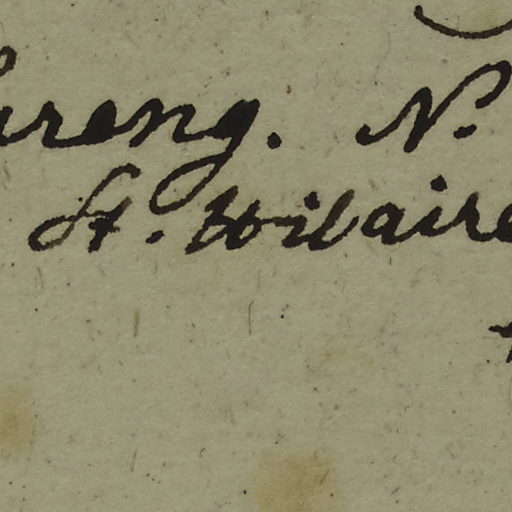 areng. N.
St. Hilaire